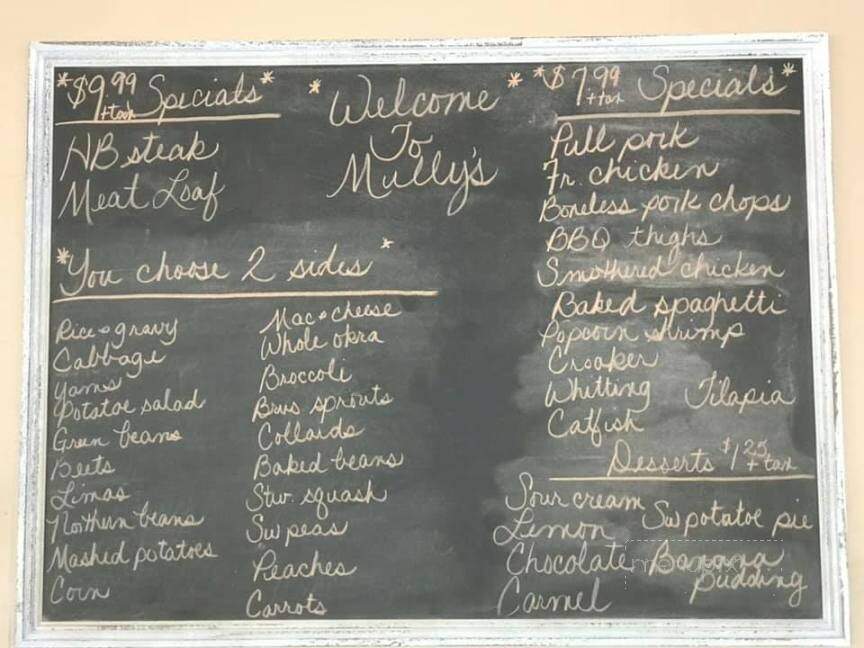 *$9.99 +tax Specials*
HB steak
Meat Loaf
*Welcome*
To
Mully's
*$7.99 +tax Specials*
Pull pork
Fr. chicken
Boneless pork chops
BBQ thighs
Smothered chicken
Baked spaghetti
Popcorn shrimp
Croaker
Whitting Tilapia
Catfish
*You choose 2 sides*
Rice & gravy
Cabbage
Yams
Potatoe salad
Green beans
Beets
Limas
Northern beans
Mashed potatoes
Corn
Mac & cheese
Whole okra
Broccoli
Brus sprouts
Collards
Baked beans
Stw. squash
Sw peas
Peaches
Carrots
Desserts $1.25 + tax
Sour cream
Lemon
Chocolate
Carmel
Sw potatoe pie
Banana
Pudding